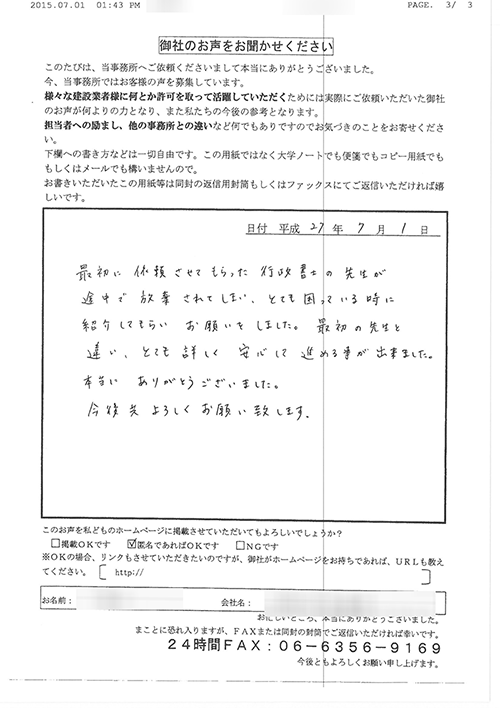 2015.07.01 01:43 PM PAGE. 3/ 3
御社のお声をお聞かせください
このたびは、当事務所へご依頼くださいまして本当にありがとうございました。
今、当事務所ではお客様の声を募集しています。
様々な建設業者様に何とか許可を取って活躍していただくためには実際にご依頼いただいた御社
のお声が何よりの力となり、また私たちの今後の参考となります。
担当者への励まし、他の事務所との違いなど何でもありですのでお気づきのことをお寄せくださ
い。
下欄への書き方などは一切自由です。この用紙ではなく大学ノートでも便箋でもコピー用紙でも
もしくはメールでも構いませんので。
お書きいただいたこの用紙等は同封の返信用封筒もしくはファックスにてご返信いただければ嬉
しいです。
日付 平成 27 年 7 月 1 日
最初に依頼させてもらった行政書士の先生が
途中で放棄されてしまい、とても困っている時に
紹介してもらいお願いをしました。最初の先生と
違い、とても詳しく安心して進める事が出来ました。
本当にありがとうございました。
今後共よろしくお願い致します。
このお声を私どものホームページに掲載させていただいてもよろしいでしょうか?
□掲載OKです ☑匿名であればOKです □NGです
※OKの場合、リンクもさせていただきたいのですが、御社がホームページをお持ちであれば、URLも教え
てください。 [ http:// ]
お名前: 会社名:
お忙しいところ、本当にありがとうございました。
まことに恐れ入りますが、FAXまたは同封の封筒でご返信いただければ幸いです。
24時間FAX:06-6356-9169
今後ともよろしくお願い申し上げます。